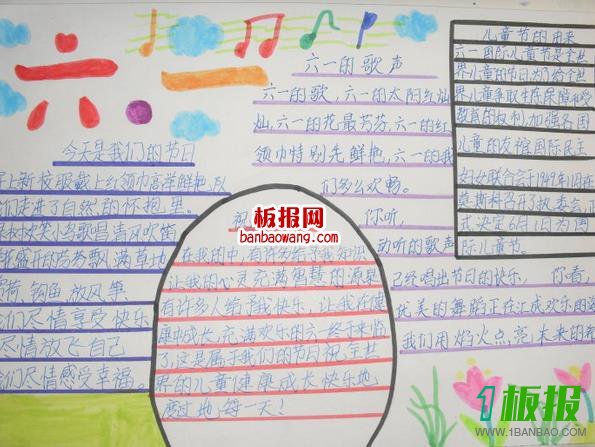 六一
今天是我们的节日
穿上新校服戴上红领巾高举鲜艳队
们走进了自然的怀抱里。
欢笑小鸟歌唱清风吹笛
新盛开的芬芳飘满草地
钓鱼,放风筝
我们尽情享受快乐
尽情放飞自己
我们尽情感受幸福。
六一的歌声
六一的歌,六一的太阳红灿
灿,六一的花最芬芳,六一的红
领巾特别先鲜艳,六一的我
们多么欢畅。
你听,
动听的歌声
已经唱出节日的快乐, 你看,
优美的舞蹈正在汇成欢乐的
我们用焰火点亮未来的
祝
在我的中,有许多给予我知识
让我的心灵充满智慧的源泉
有许多人给予我快乐,让我在健
康中成长,充满欢乐的六一终于来临
了,这是属于我们的节日祝全世
界的儿童健康成长快乐地
度过地每一天!
儿童节的由来
六一国际儿童节是全世
界儿童的节日为了给全世
界儿童争取生存保障受
教育的权利,加强各国
儿童的友谊国际民主
妇女联合会于1949年11月在
莫斯科召开了执委会,正
式决定6月1日为国
际儿童节。
板报网
banbaowang.com
1板报
WWW.1BANBAO.COM